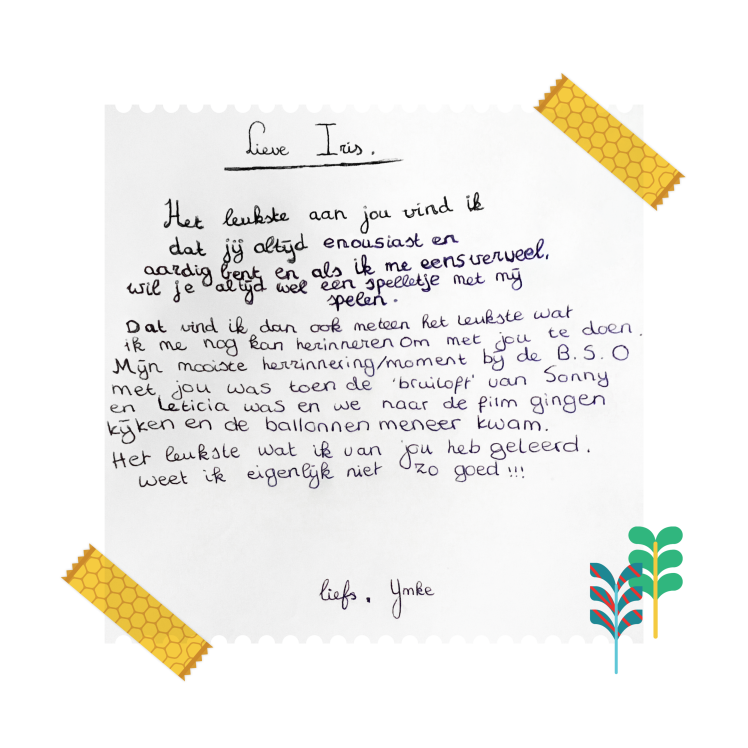 Lieve Iris.
Het leukste aan jou vind ik
dat jij altijd enousiast en
aardig bent en als ik me eens verveel,
wil je altijd wel een spelletje met mij
spelen.
Dat vind ik dan ook meteen het leukste wat
ik me nog kan herinneren om met jou te doen.
Mijn mooiste herrinnering/moment bij de B.S.O
met jou was toen de 'bruiloft' van Sonny
en Leticia was en we naar de film gingen
kijken en de ballonnen meneer kwam.
Het leukste wat ik van jou heb geleerd.
weet ik eigenlijk niet zo goed!!!
liefs, Ymke